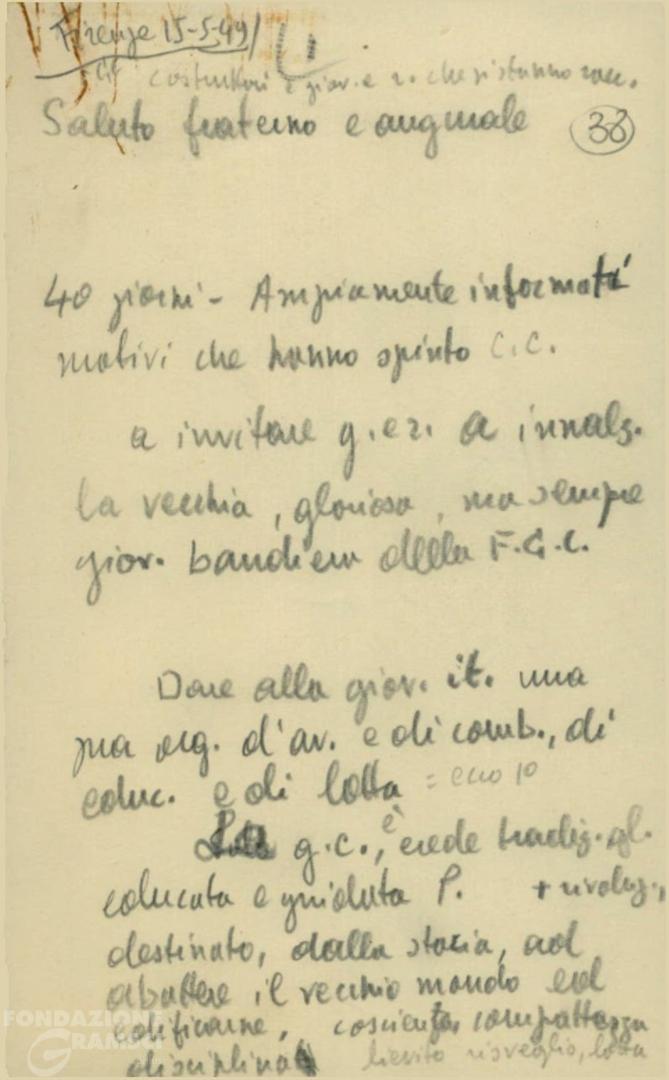 Firenze 15-5-49
costruttori e giov. e r. che si stanno racc.
Saluto fraterno e augurale 38
40 giorni - Ampiamente informati
motivi che hanno spinto C.C.
a invitare g. e r. a innalz.
la vecchia, gloriosa, ma sempre
giov. bandiera della F.G.C.
Dare alla giov. it. una
sua org. d'av. e di comb., di
educ. e di lotta = ecco
g.c., è erede tradiz. gl.
educata e guidata P. + rivoluz.,
destinato, dalla storia, ad
abattere il vecchio mondo ed
edificarne, coscienza, compattezza
disciplina lievito risveglio, lotta
FONDAZIONE
GRAMSCI